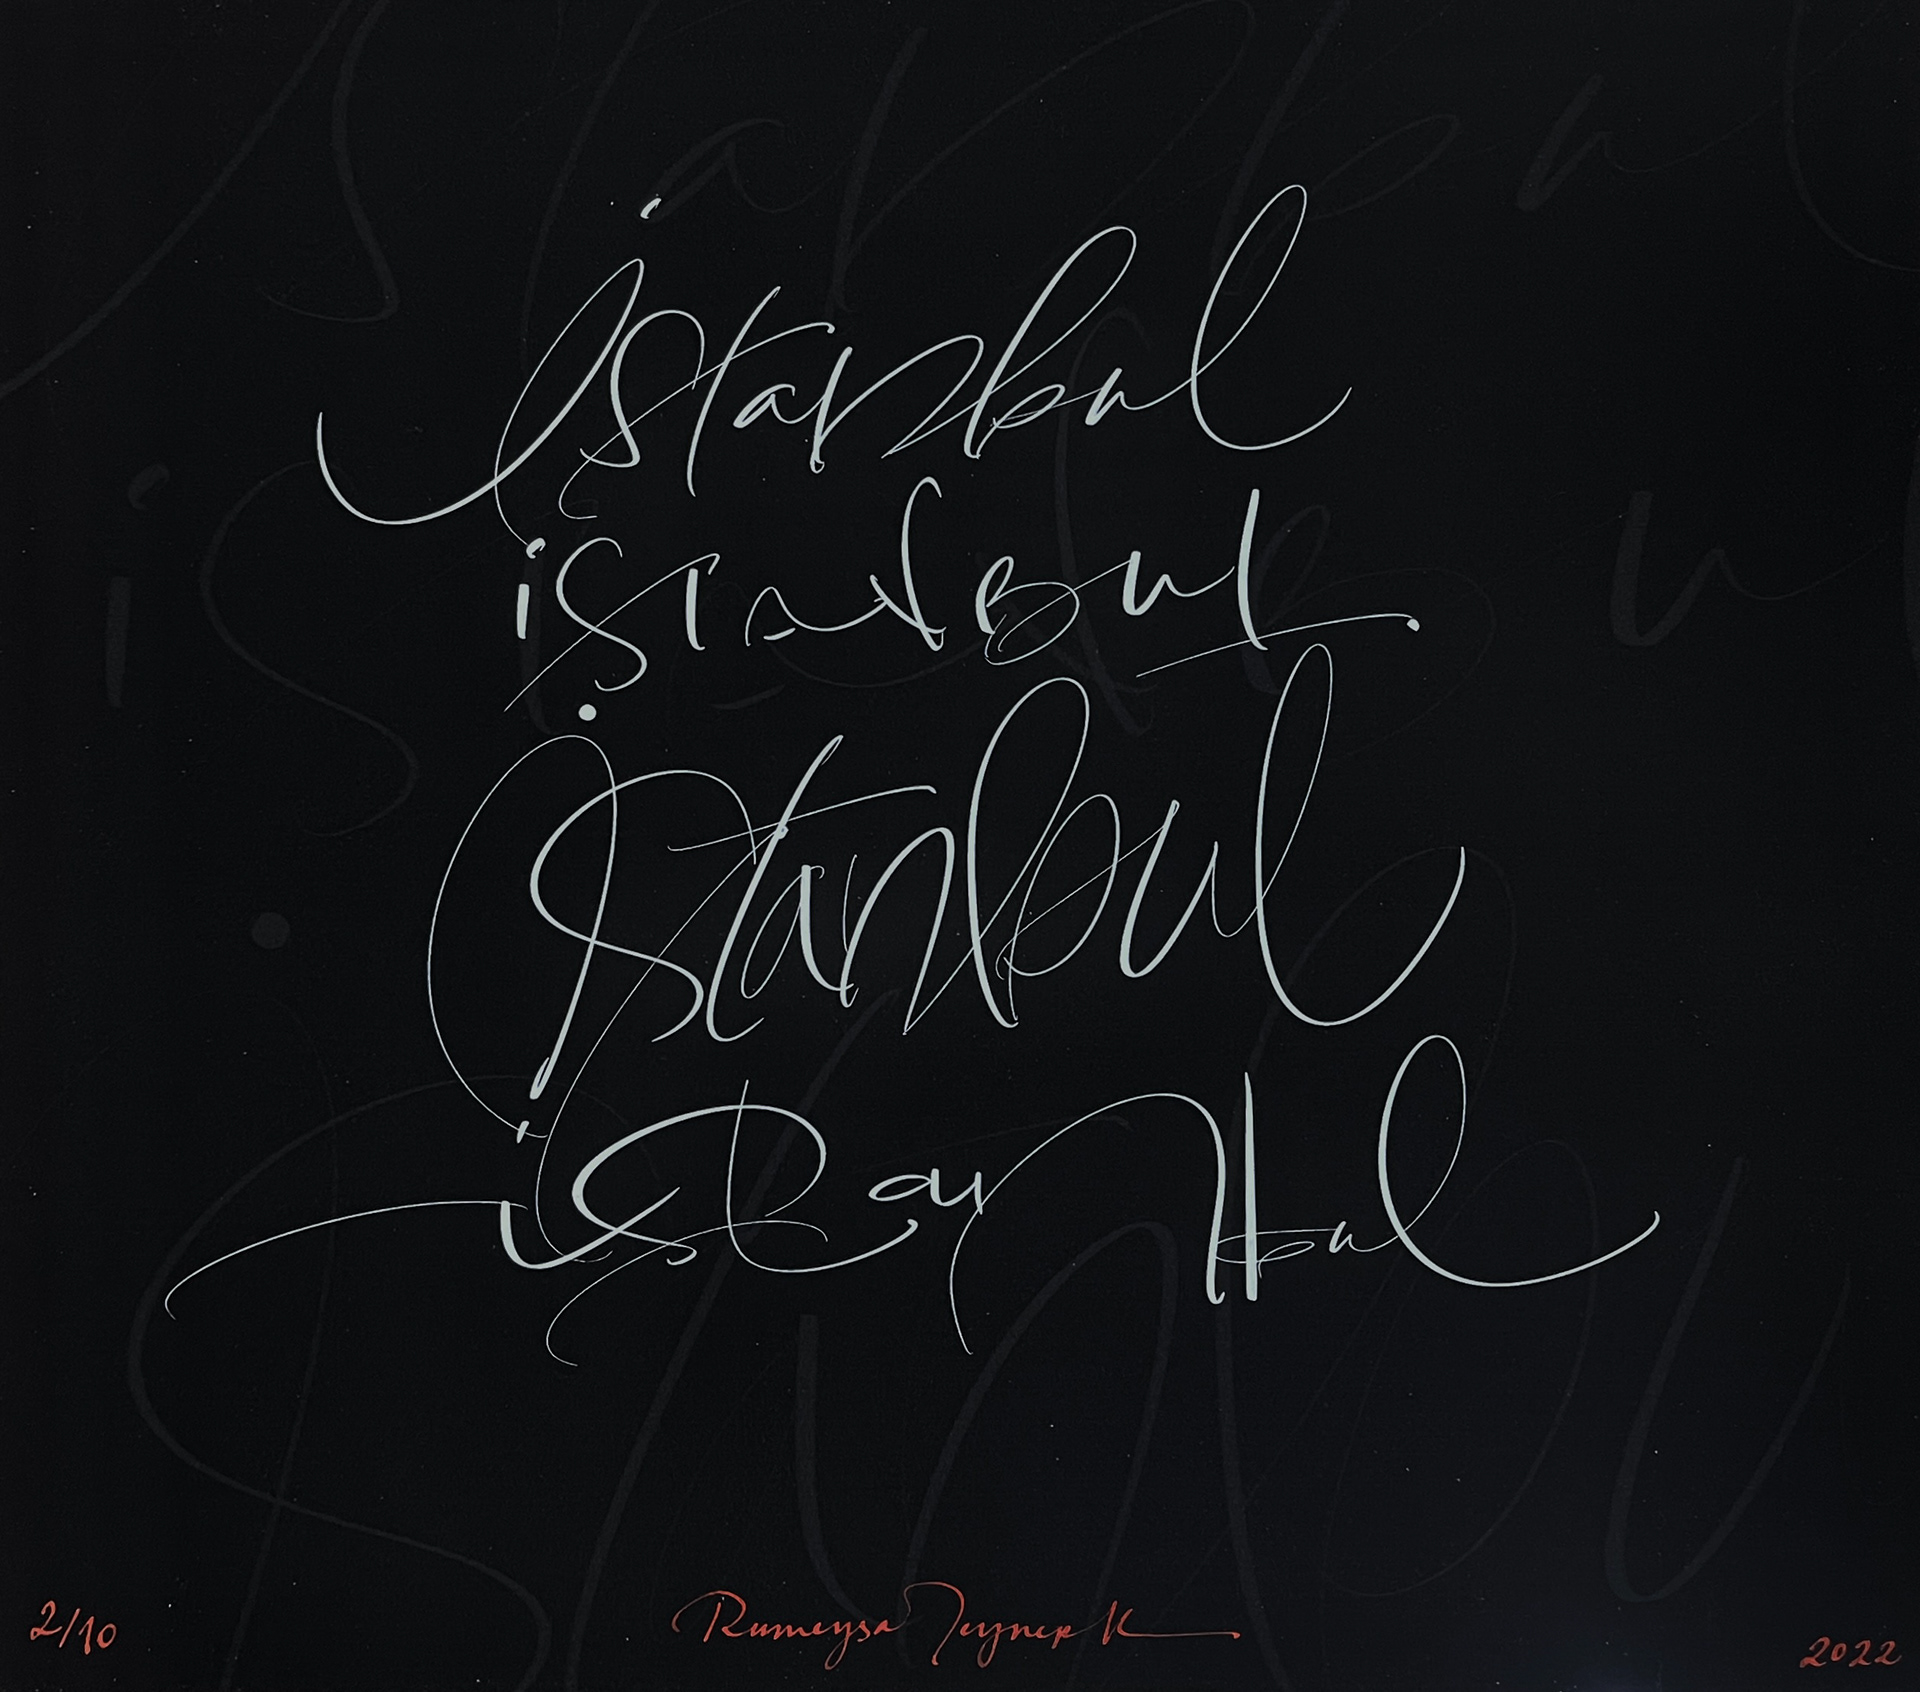 istanbul
istanbul
istanbul
istanbul
2/10
Rumeysa Zeynep K
2022